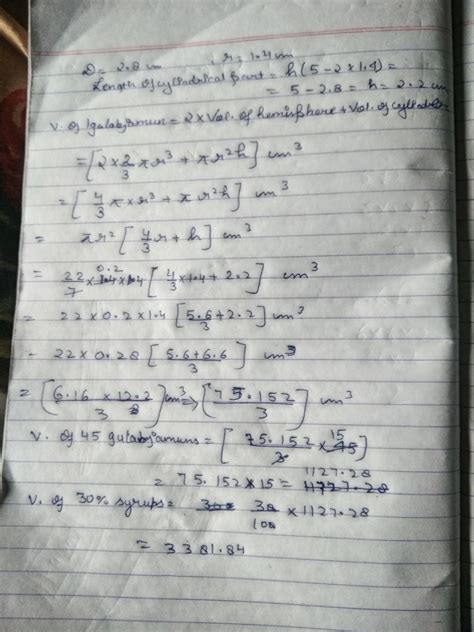 D = 2.8 cm , r = 1.4 cm
Length of cylindrical part = h (5 - 2 × 1.4) =
= 5 - 2.8 = h = 2.2 cm
V. of 1 gulabjamun = 2 × Vol. of hemisphere + Vol. of cylinder
= [2 × 2/3 πr³ + πr²h] cm³
= [4/3 π × r³ + π r²h] cm³
= πr² [4/3 r + h] cm³
= 22/7 × 1.4 0.2 × 1.4 [4/3 × 1.4 + 2.2] cm³
= 22 × 0.2 × 1.4 [5.6/3 + 2.2] cm³
- 22 × 0.28 [5.6 + 6.6/3] cm³
= [6.16 × 12.2/3] cm³ => [75.152/3] cm³
V. of 45 gulabjamuns = [75.152/3 × 45 15]
= 75.152 × 15 = 1127.28
V. of 30% syrups = 30/100 × 1127.28
= 3381.84